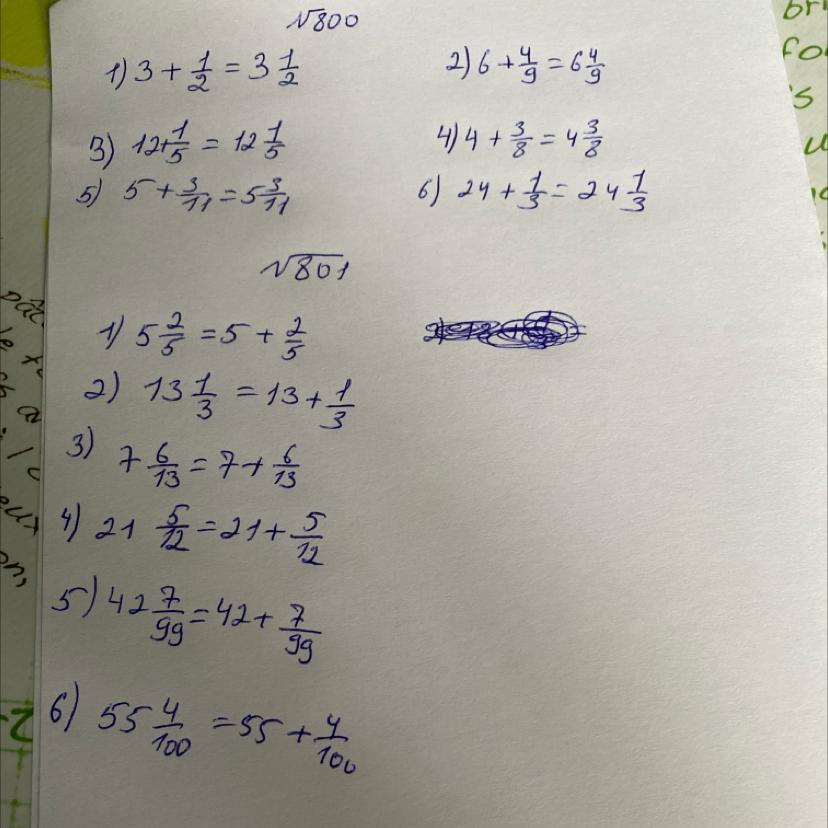 №800
1) 3 + 1/2 = 3 1/2
2) 6 + 4/9 = 6 4/9
3) 12 + 1/5 = 12 1/5
4) 4 + 3/8 = 4 3/8
5) 5 + 3/11 = 5 3/11
6) 24 + 1/3 = 24 1/3
№801
1) 5 2/5 = 5 + 2/5
2) 13 1/3 = 13 + 1/3
3) 7 6/13 = 7 + 6/13
4) 21 5/12 = 21 + 5/12
5) 42 7/99 = 42 + 7/99
6) 55 4/100 = 55 + 4/100